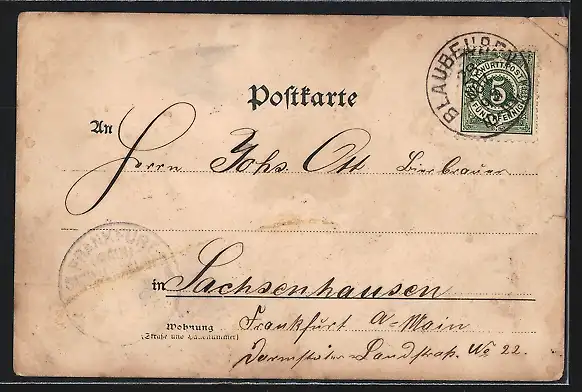 BLAUBEUREN
K. WÜRTT. POST
5
FÜNF PFENNIG
Postkarte
An
Herrn Johs. Ott Bierbrauer
FRANKFURT
in Sachsenhausen
Wohnung
(Straße und Hausnummer)
Frankfurt a-Main
Darmstäter-Landstraß. No 22.